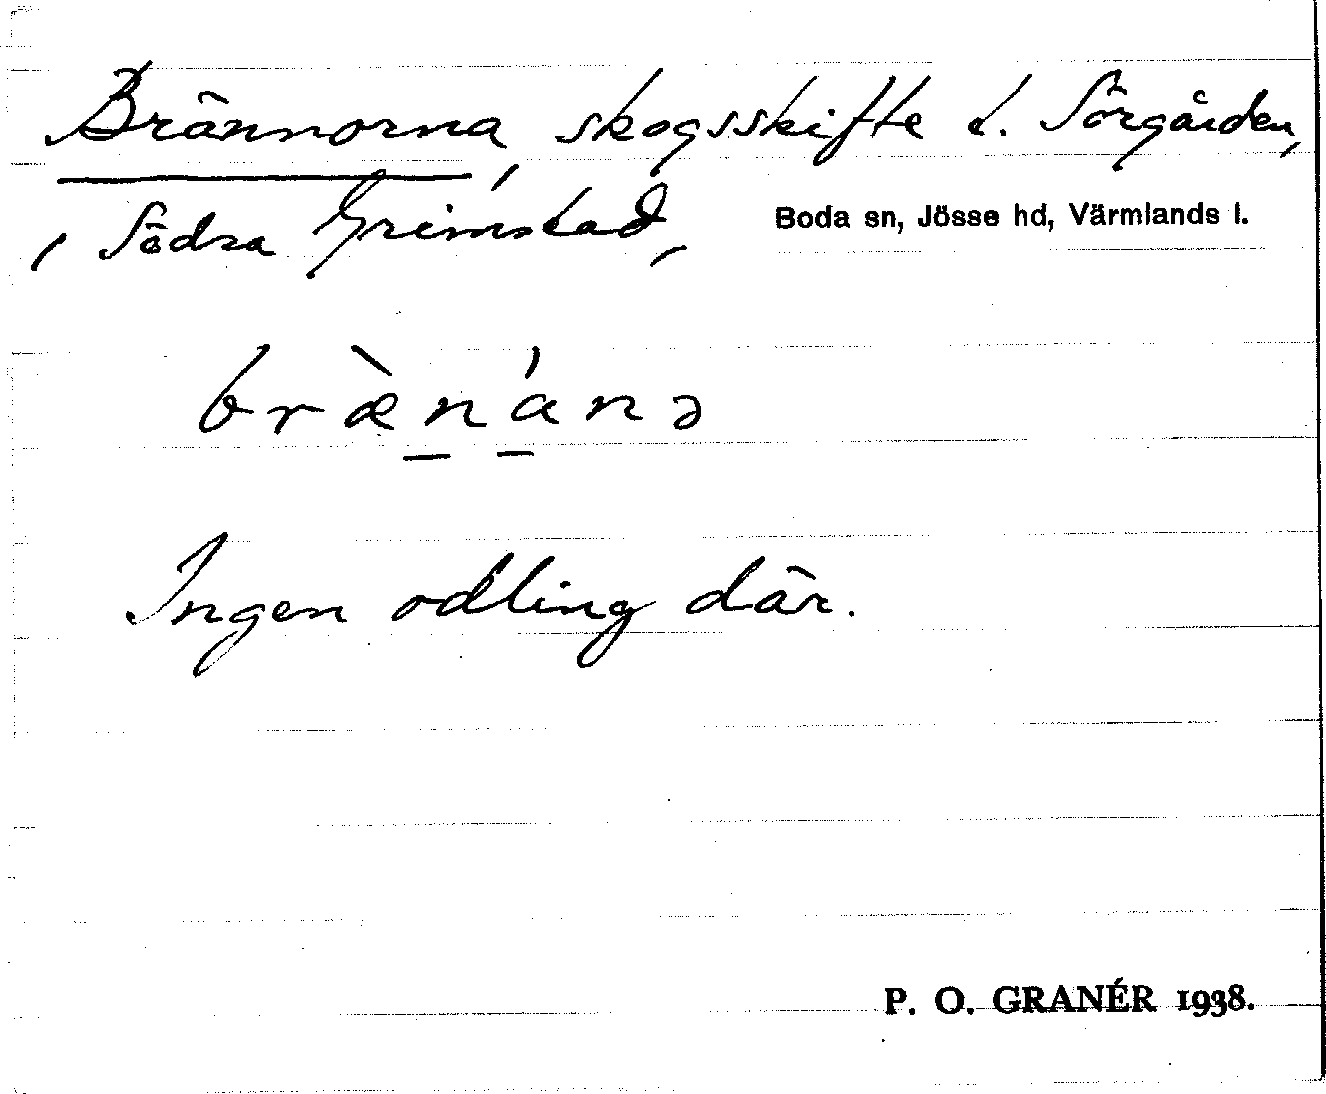 Brännorna, skogsskifte t. Sörgården,
, Södra Grimstad, Boda sn, Jösse hd, Värmlands l.
bræ̀nánə
Ingen odling där.
P. O. GRANÉR 1938.